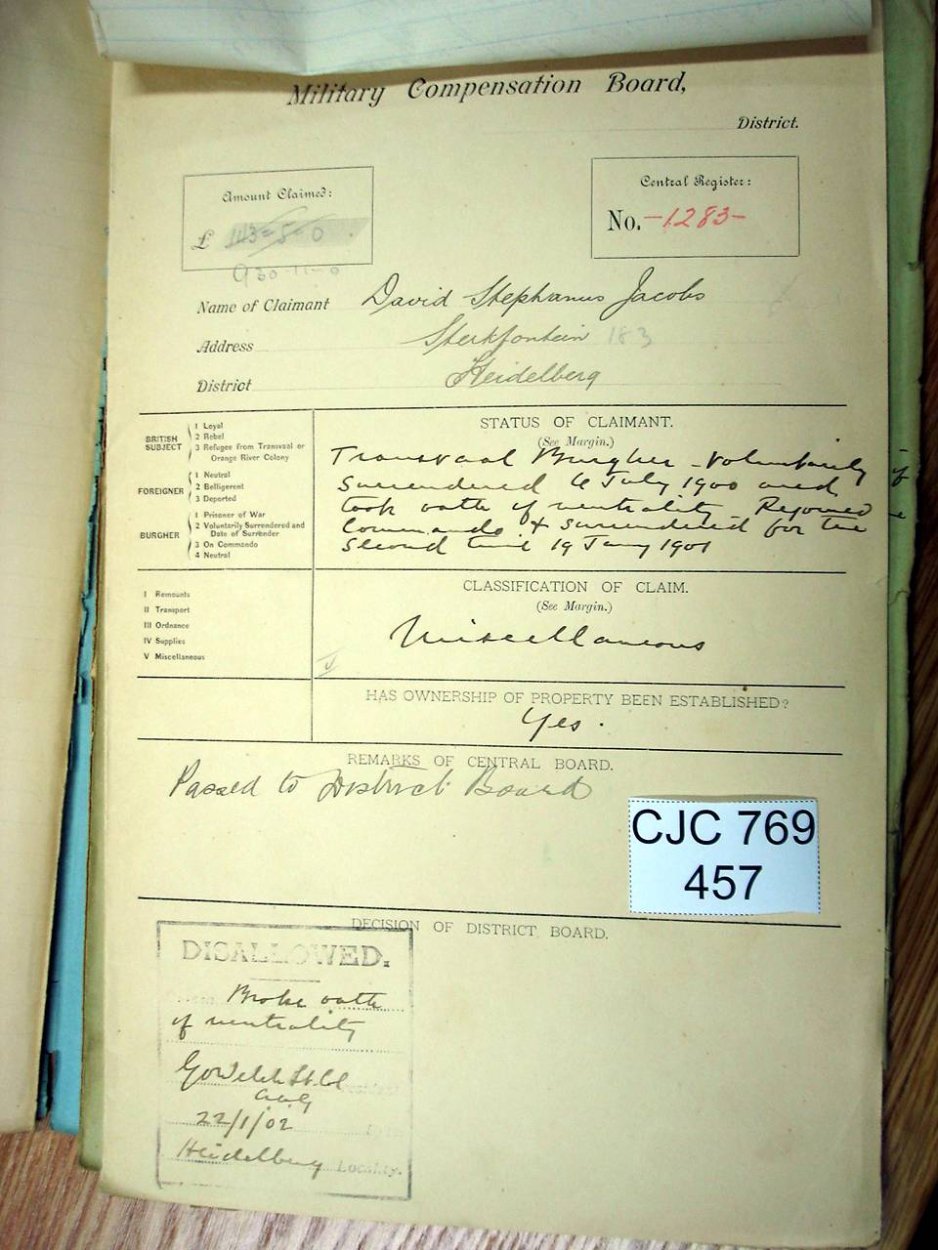 Military Compensation Board,
District.
Amount Claimed:
£ 143-5-0
930-11-0
Central Register:
No. -1283-
Name of Claimant David Stephanus Jacobs
Address Sterkfontein 183
District Heidelberg
BRITISH SUBJECT
1 Loyal
2 Rebel
3 Refugee from Transvaal or
Orange River Colony
FOREIGNER
1 Neutral
2 Belligerent
3 Deported
BURGHER
1 Prisoner of War
2 Voluntarily Surrendered and
Date of Surrender
3 On Commando
4 Neutral
STATUS OF CLAIMANT.
(See Margin.)
Transvaal Burgher - Voluntarily
Surrendered 6 July 1900 and
took oath of neutrality Rejoined
Commando & surrendered for the
second time 19 Jany 1901
I Remounts
II Transport
III Ordnance
IV Supplies
V Miscellaneous
CLASSIFICATION OF CLAIM.
(See Margin.)
Miscellaneous
V
HAS OWNERSHIP OF PROPERTY BEEN ESTABLISHED?
Yes.
REMARKS OF CENTRAL BOARD.
Passed to District Board
CJC 769
457
DECISION OF DISTRICT BOARD.
DISALLOWED.
Broke oath
of neutrality
22/1/02
Heidelberg Locality.